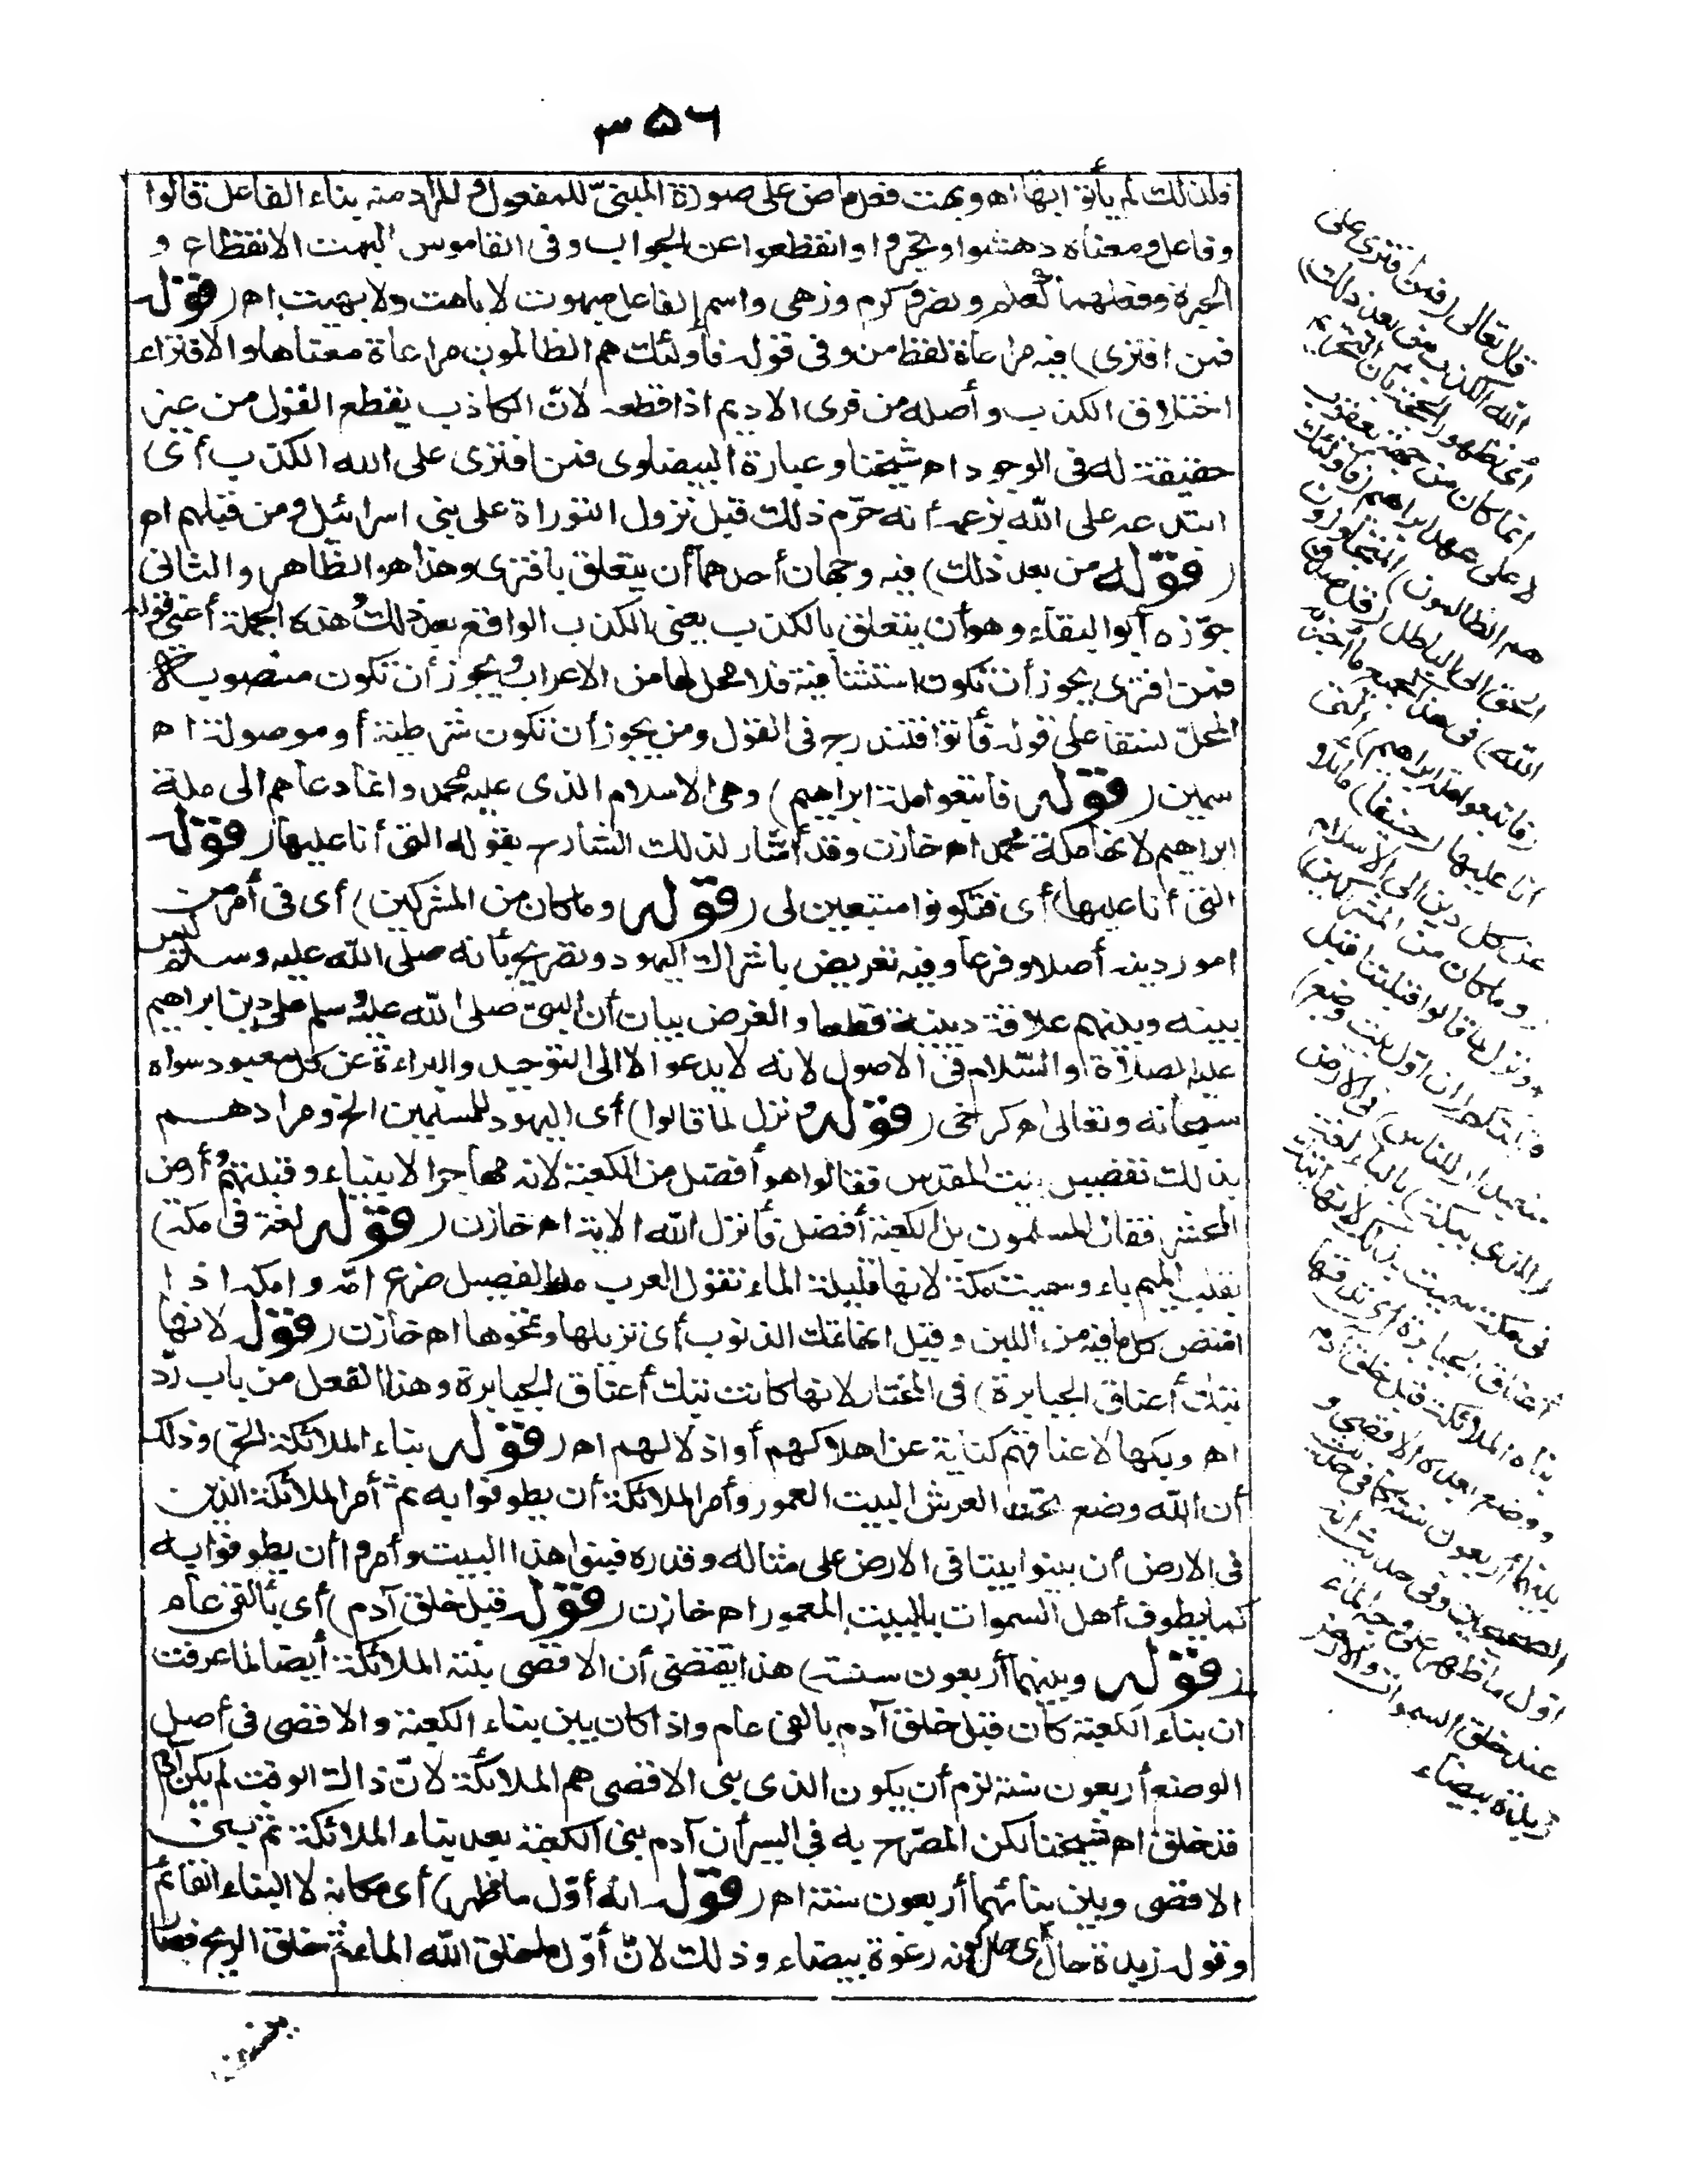 ٣٥٦
فلذلك لم يأتوا بها اه وبهت فعل ماض على صورة المبنيّ للمفعول والمراد منه بناء الفاعل قالوا
وفاعل ومعناه دهشوا وتحيروا وانقطعوا عن الجواب وفى القاموس البهت الانقطاع و
الحيرة وفعلهما كعلم ونصر وكرم وزهى واسم الفاعل مبهوت لا باهت ولا بهيت اه (قوله
فمن افترى) فيه مراعاة لفظ من وفى قوله فأولئك هم الظالمون مراعاة معناها والافتراء
اختلاق الكذب وأصله من فرى الاديم اذا قطعه لانّ الكاذب يقطع القول من غير
حقيقة له فى الوجود اه شيخنا وعبارة البيضاوى فمن افترى على الله الكذب أى
ابتدعه على الله بزعمه أنه حرّم ذلك قبل نزول التوراة على بنى اسرائيل ومن قبلهم اه
(قوله من بعد ذلك) فيه وجهان أحدهما أن يتعلق بافترى وهذا هو الظاهر والثانى
جوّزه أبو البقاء وهو أن يتعلق بالكذب يعنى الكذب الواقع بعد ذلك وهذه الجملة أعنى قوله
فمن افترى يجوز أن تكون استئنافية فلا محل لها من الاعراب ويجوز أن تكون منصوبة
المحلّ نسقا على قوله فأتوا فتندرج فى القول ومن يجوز أن تكون شرطية أو موصولة اه
سمين (قوله فاتبعوا ملة ابراهيم) وهى الاسلام الذى عليه محمد وانما دعاهم الى ملة
ابراهيم لانها ملة محمد اه خازن وقد أشار لذلك الشارح بقوله التى أنا عليها (قوله
التى أنا عليها) أى فتكونوا متبعين لى (قوله وما كان من المشركين) أى فى أمر من
امور دينه أصلا وفرعا وفيه تعريض باشراك اليهود وتصريح بأنه صلى الله عليه وسلم ليس
بينه وبينهم علاقة دينية قطعا والغرض بيان أن النبىّ صلى الله عليه وسلم على دين ابراهيم
عليه الصلاة والسلام فى الاصول لانه لا يدعو الا الى التوحيد والبراءة عن كل معبود سواه
سبحانه وتعالى اه كرخى (قوله ونزل لما قالوا) أى اليهود للمسلمين الخ ومرادهم
بذلك تفضيل بيت المقدس فقالوا هو أفضل من الكعبة لانه مهاجر الانبياء وقبلتهم وأرض
المحشر فقال المسلمون بل الكعبة أفضل فأنزل الله الاية اه خازن (قوله لغة فى مكة)
بقلب الميم باء وسميت مكة لانها قليلة الماء تقول العرب مك الفصيل ضرع امّه وامكه اذا
امتص كل ما فيه من اللبن وقيل انها تمك الذنوب أى تزيلها وتمحوها اه خازن (قوله لانها
تبك أعناق الجبابرة) فى المختار لانها كانت تبك أعناق الجبابرة وهذا الفعل من باب ردّ
اه وبكها لاعناقهم كناية عن اهلاكهم أو اذلالهم اه (قوله بناء الملائكة الخ) وذلك
أن الله وضع تحت العرش البيت المعمور وأمر الملائكة أن يطوفوا به ثم أمر الملائكة الذين
فى الارض أن يبنوا بيتا فى الارض على مثاله وقدره فبنوا هذا البيت وأمروا أن يطوفوا به
كما يطوف أهل السموات بالبيت المعمور اه خازن (قوله قبل خلق آدم) أى بألفى عام
(قوله وبينهما أربعون سنة) هذا يقتضى أن الاقصى بنته الملائكة أيضا لما عرفت
ان بناء الكعبة كان قبل خلق آدم بالفى عام واذا كان بين بناء الكعبة والاقصى فى أصل
الوضع أربعون سنة لزم أن يكون الذى بنى الاقصى هم الملائكة لانّ ذلك الوقت لم يكن آدم
قد خلق اه شيخنا لكن المصرّح به فى السير أن آدم بنى الكعبة بعد بناء الملائكة ثم بنى
الاقصى وبين بنائهما أربعون سنة اه (قوله انه أوّل ما ظهر) أى مكانه لا البناء القائم
وقوله زبدة حال أى حال كونه رغوة بيضاء وذلك لانّ أوّل ما خلق الله الماء ثم خلق الريح فصار
قال تعالى (فمن افترى على
الله الكذب من بعد ذلك)
أى ظهور الحجة بأن التحريم
انما كان من جهة يعقوب
لا على عهد ابراهيم (فأولئك
هم الظالمون) المتجاوزون
الحق الى الباطل (قل صدق
الله) فى هذا كجميع ما أخبر به
(فاتبعوا ملة ابراهيم) التى
أنا عليها (حنيفا) مائلا
عن كل دين الى الاسلام
(وما كان من المشركين)
ونزل لما قالوا قبلتنا قبل
قبلتكم (ان اوّل بيت وضع)
متعبدا (للناس) فى الارض
(للذى ببكة) بالباء لغة
فى مكة سميت بذلك لانها تبك
أعناق الجبابرة أى تدقها
بناه الملائكة قبل خلق آدم
ووضع بعده الاقصى و
بينهما أربعون سنة كما فى حديث
الصحيحين وفى حديث انه
اوّل ما ظهر على وجه الماء
عند خلق السموات والارض
زبدة بيضاء